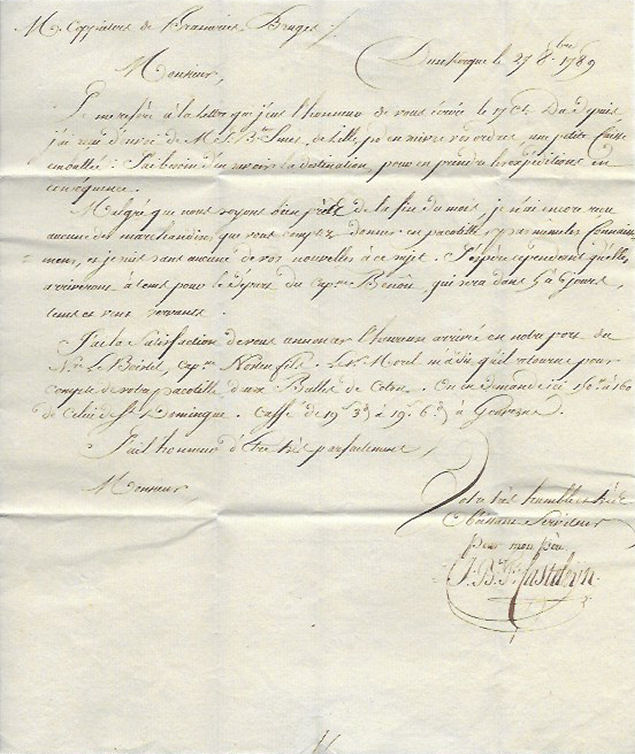 Mr. Coppieters de Bruges
Dunkerque le 27 8.bre 1789
Monsieur,
Je me refere à la lettre que j'eus l'honneur de vous écrire le 17 Ct. Du depuis
j'ai reçu d'envoi de M. J. Bte. Smet, de Lille, pr. en suivre vos ordres une petite Caisse
emballée : J'ai besoin d'en savoir la destination, pour en prendre les expéditions en
consequence.
Malgré que nous soyons bien près de la fin du mois, je n'ai encore reçu
aucune des marchandises que vous comptez donner en pacotille
mens, et je suis sans aucune de vos nouvelles à ce sujet. J'espere cependant qu'elles
arriveront à tems pour le départ du Cap.ne Benoit, qui sera dans 5 à 6 jours,
tems et vent servants.
J'ai la satisfaction de vous annoncer l'heureuse arrivée en notre port du
Nre. Le Boistel, cap.ne fils. Le Sr. Morel m'a dit qu'il retourne pour
compte de votre pacotille deux Balles de Coton. On en demande ici 150 # à 160
de Celui de St. Domingue. Caffé de 19 s 3 d à 19 s 6 d à
J'ai l'honneur d'être très parfaitement,
Monsieur
Votre très humble & très
Obéissant Serviteur
pour mon père
J. Bte.